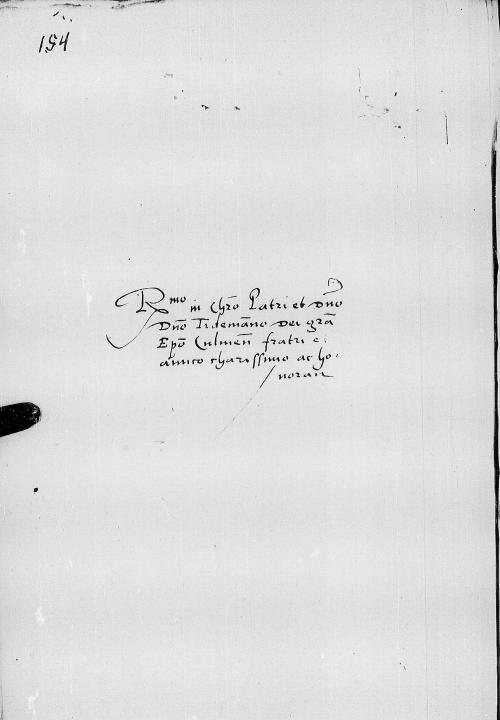 154
Rmo in Chro Patri et Dño
Dño Tidemanno dei grã
Epõ Culmeñ fratri et
amico charissimo ac ho-
noran